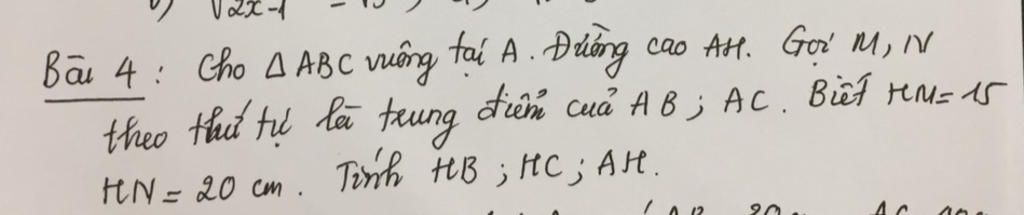 √2x-1
Bài 4 : Cho △ ABC vuông tại A. Đường cao AH. Gọi M, N
theo thứ tự là trung điểm của AB ; AC. Biết HM = 15
HN = 20 cm. Tính HB ; HC ; AH.